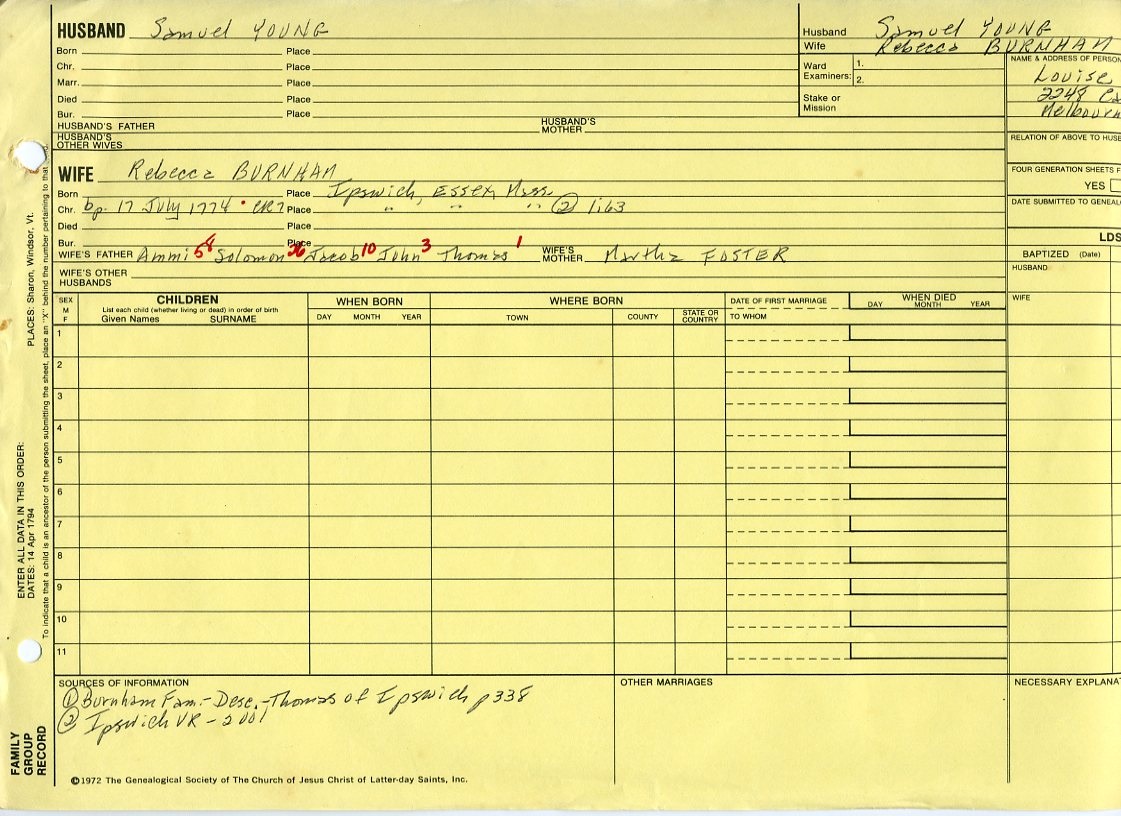 HUSBAND Samuel YOUNG
Born Place
Chr. Place
Marr. Place
Died Place
Bur. Place
HUSBAND'S FATHER HUSBAND'S MOTHER
HUSBAND'S OTHER WIVES
Husband Samuel YOUNG
Wife Rebecca BURNHAM
Ward Examiners: 1.
2.
Stake or Mission
NAME & ADDRESS OF PERSON
Louise
2248
Melbourn
RELATION OF ABOVE TO HUSB
FOUR GENERATION SHEETS F
YES
DATE SUBMITTED TO GENEAL
LDS
BAPTIZED (Date)
HUSBAND
WIFE
WIFE Rebecca BURNHAM
Born Place Ipswich, ESSEX, Mass
Chr. bp. 17 July 1774 • CR7 Place " " " ② 1:63
Died Place
Bur. Place
WIFE'S FATHER Ammi 58 Solomon Jacob 10 John 3 Thomas 1 WIFE'S MOTHER Martha FOSTER
WIFE'S OTHER HUSBANDS
SEX M F
CHILDREN
List each child (whether living or dead) in order of birth
Given Names SURNAME
WHEN BORN
DAY MONTH YEAR
WHERE BORN
TOWN COUNTY STATE OR COUNTRY
DATE OF FIRST MARRIAGE
TO WHOM
WHEN DIED
DAY MONTH YEAR
1
2
3
4
5
6
7
8
9
10
11
SOURCES OF INFORMATION
① Burnham Fam.- Desc.-Thomas of Ipswich p338
② Ipswich VR - 2001
OTHER MARRIAGES
NECESSARY EXPLANA
©1972 The Genealogical Society of The Church of Jesus Christ of Latter-day Saints, Inc.
FAMILY GROUP RECORD
ENTER ALL DATA IN THIS ORDER:
DATES: 14 Apr 1794
PLACES: Sharon, Windsor, Vt.
To indicate that a child is an ancestor of the person submitting the sheet, place an "X" behind the number pertaining to that